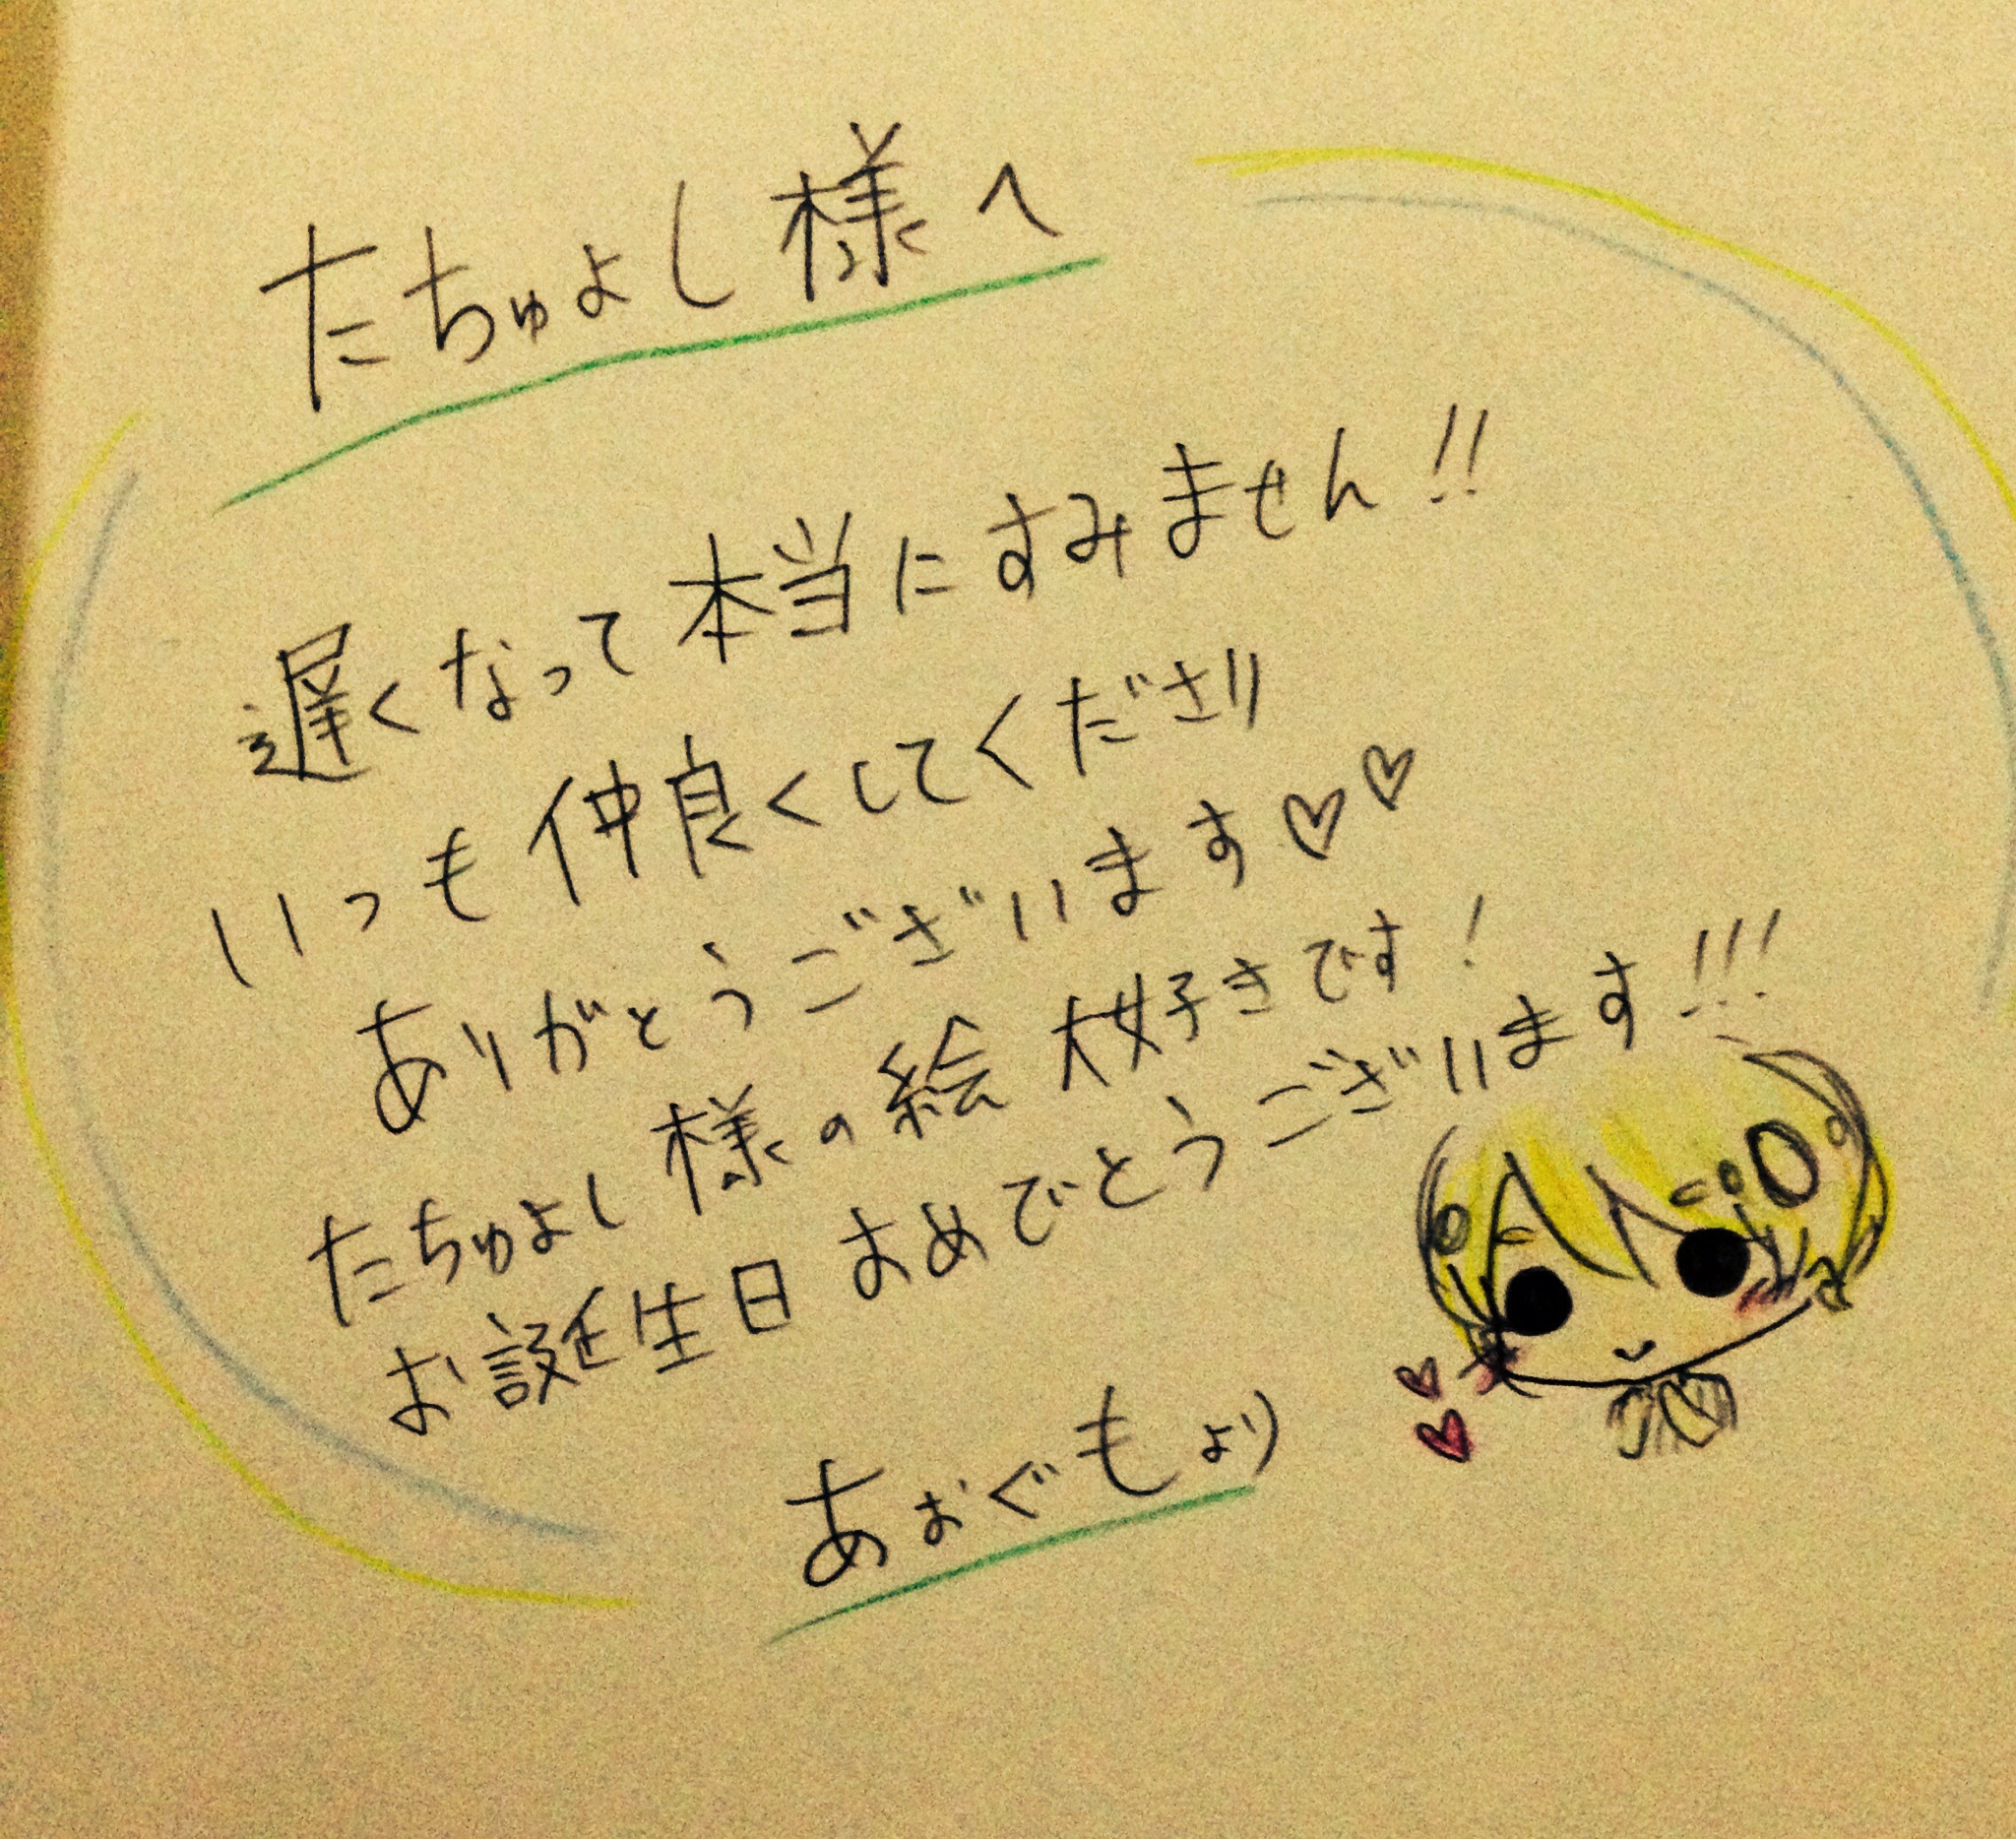 たちゅよし様へ
遅くなって本当にすみません!!
いつも仲良くしてくださり
ありがとうございます♡♡
たちゅよし様の絵大好きです!
お誕生日おめでとうございます!!!
あおぐもより